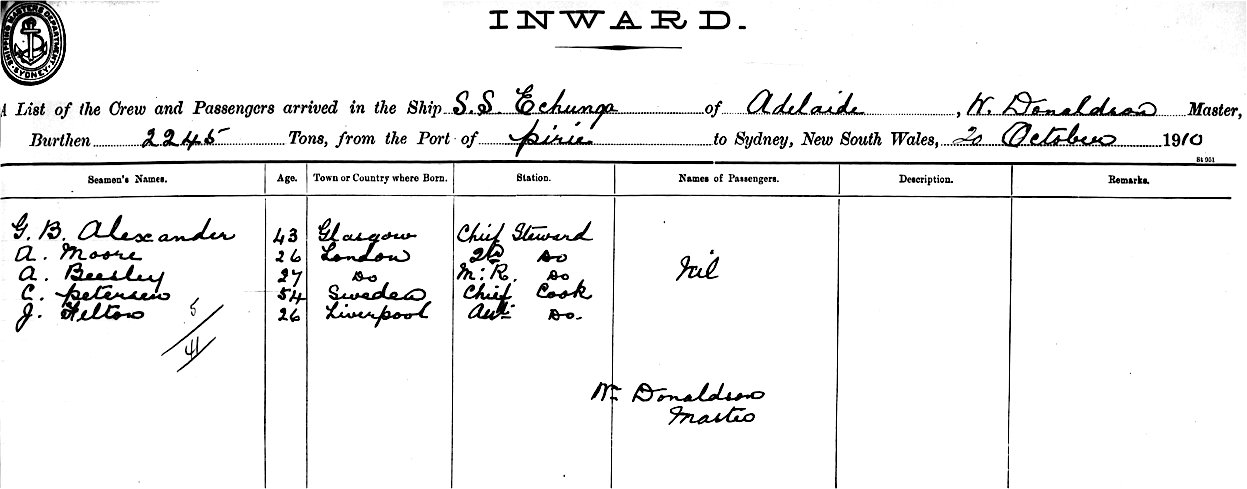 SHIPPING MASTERS DEPARTMENT
SYDNEY
INWARD.
A List of the Crew and Passengers arrived in the Ship S.S. Echunga of Adelaide, W. Donaldson Master,
Burthen 2245 Tons, from the Port of pirie to Sydney, New South Wales, 20 October 1910
St 951
Seamen's Names. Age. Town or Country where Born. Station. Names of Passengers. Description. Remarks.
G. B. Alexander 43 Glasgow Chief Steward
A. Moore 26 London 2nd Do
A. Beesley 27 Do M. R. Do Nil
C. petersen 54 Sweden Chief Cook
J. Felton 26 Liverpool Do.
5
41
Wm Donaldson
Master